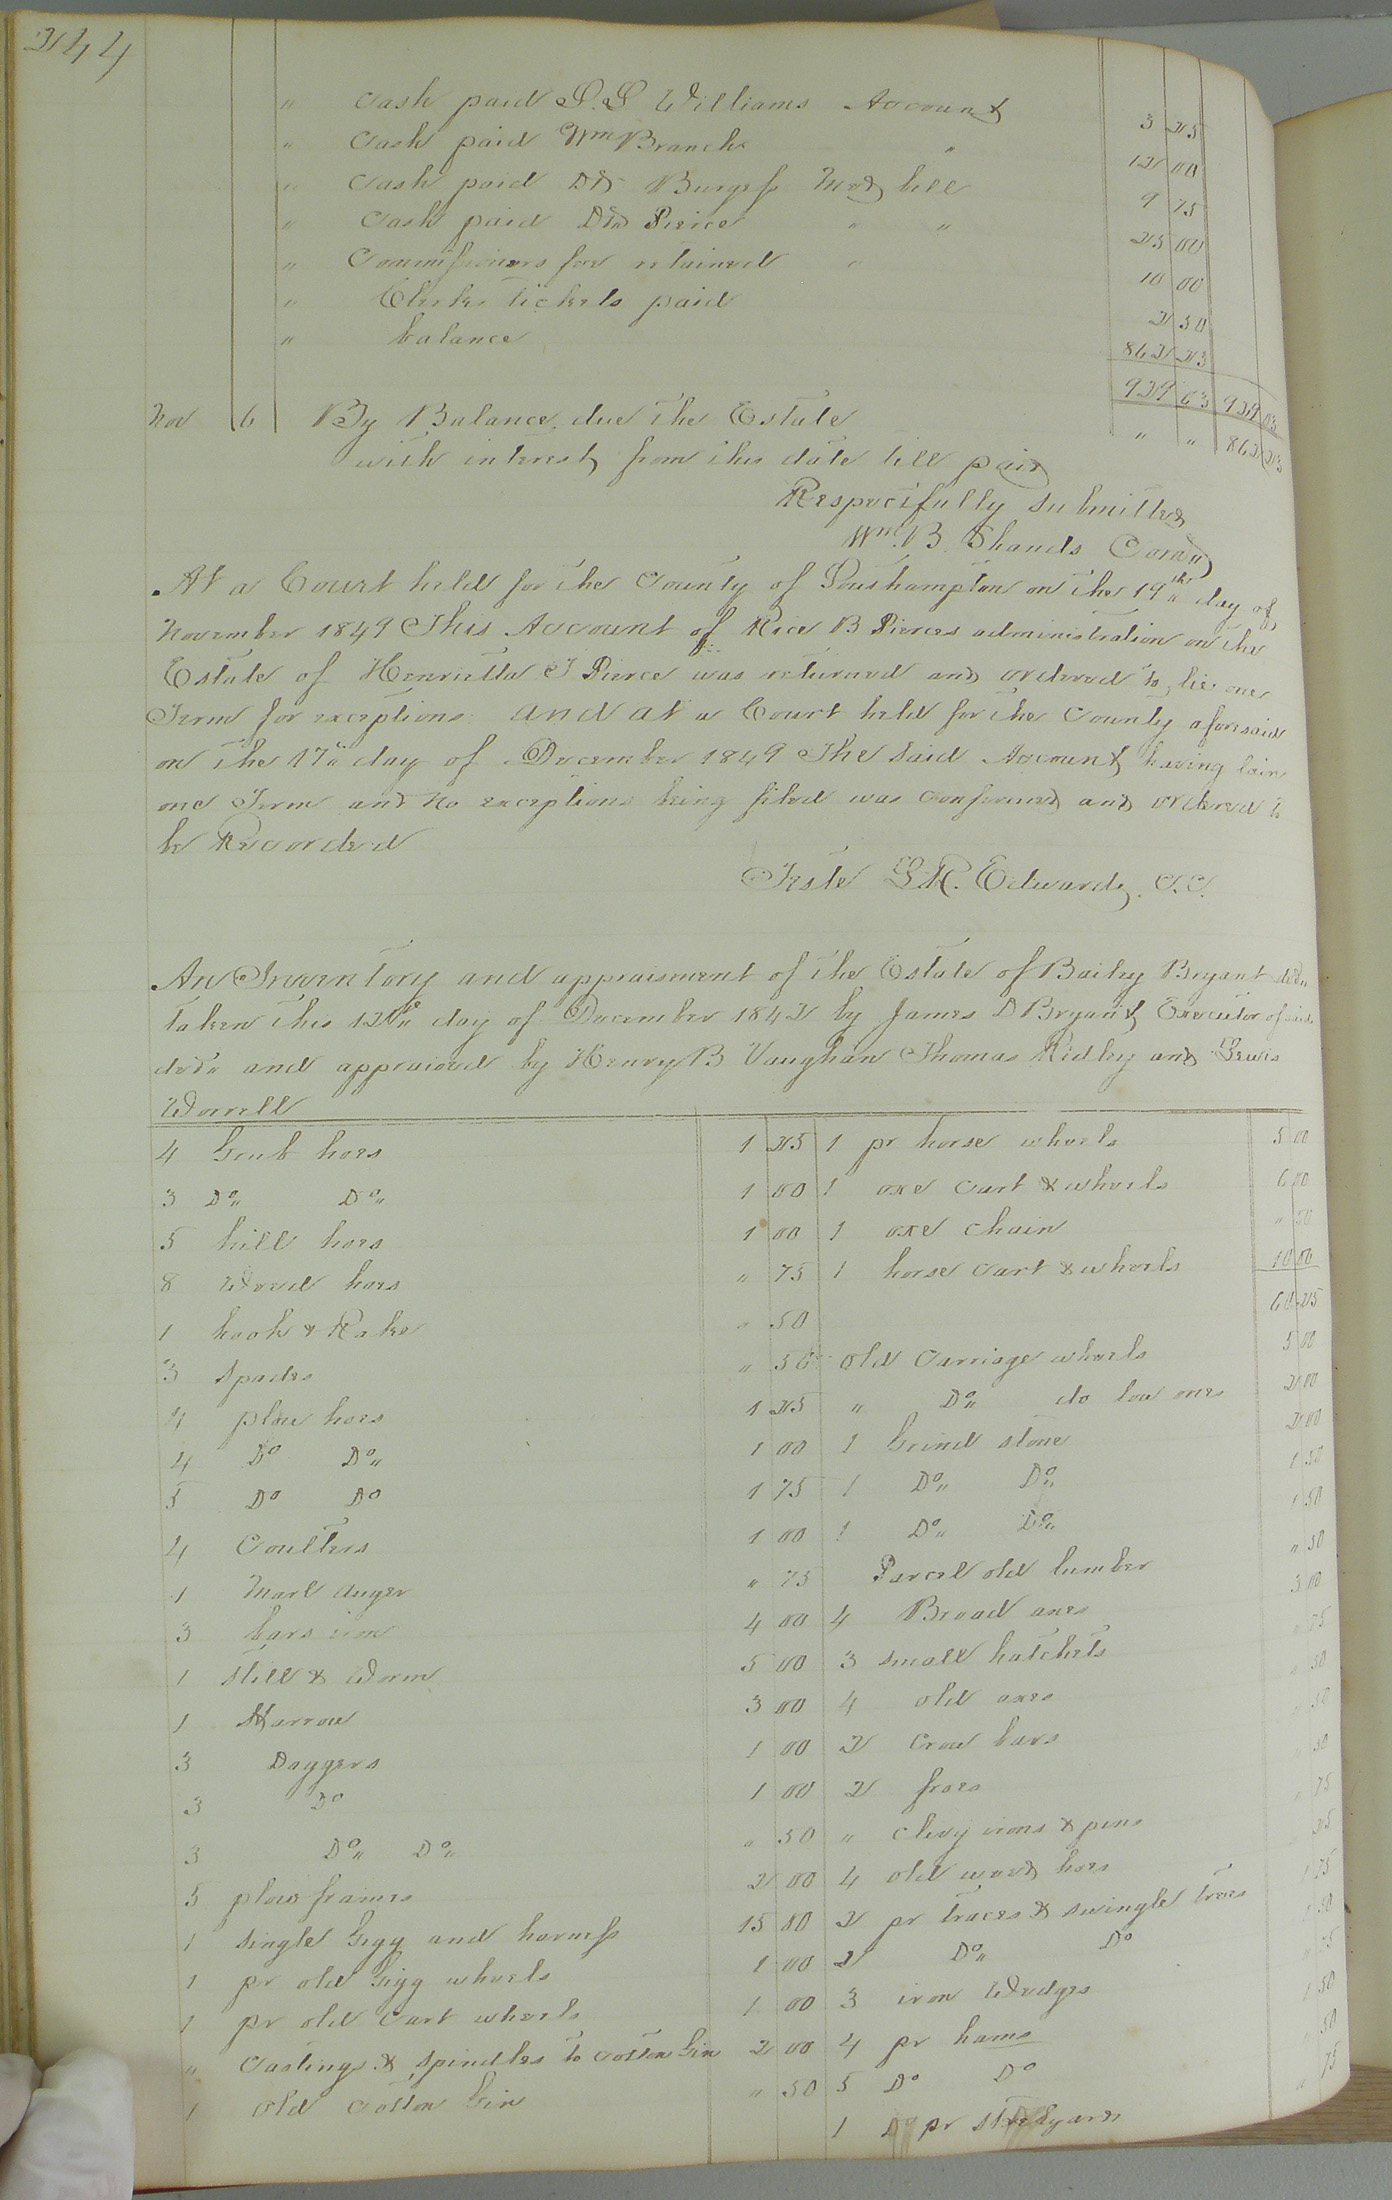 244
" Cash paid L. L Williams Account 3 25
" Cash paid Wm Branch " 12 00
" Cash paid Dr Burgess Med bill 9 75
" Cash paid Dr Pierce " " 25 00
" Commissioners fee retained " 10 00
" Clerks tickets paid 2 50
" balance 862 23
929 63 929 63
Nov 6 By Balance due the Estate " " 862 23
with interest from this date till paid
Respectfully submitted
Wm. B. Shands Comr
At a Court held for the County of Southampton on the 19th day of
November 1849 This Account of Rice B Pierces administration on the
Estate of Henrietta T Pierce was returned and ordered to lie one
Term for exceptions and at a Court held for the County aforesaid
on the 17" day of December 1849 The said Account having lain
one Term and no exceptions being filed was confirmed and ordered to
be Recorded
Teste L. R. Edwards, C.C.
An Inventory and appraisment of the Estate of Bailey Bryant decd
taken this 12th day of December 1842 by James D Bryant Executor of said
decd and appraised by Henry B Vaughan Thomas Ridley and Lewis
Worrell
4 Grub hoes 1 25 1 pr horse wheels 5 00
3 Do Do 1 00 1 oxe cart & wheels 6 00
5 hill hoes 1 00 1 oxe chain " 50
8 Weed hoes " 75 1 horse cart & wheels 10 00
1 hook & Rake " 50 60 25
3 Spades " 50 old Carriage wheels 5 00
4 plow hoes 1 25 " Do do low ones 2 00
4 Do Do 1 00 1 Grind stone 2 00
5 Do Do 1 75 1 Do Do 1 50
4 Coulters 1 00 1 Do Do 1 50
1 Marl auger " 75 Parcel old lumber " 50
3 bars iron 4 00 4 Broad axes 3 00
1 still & Worm 5 00 3 small hatchets " 75
1 Harrow 3 00 4 old axes " 50
3 Daggers 1 00 2 Crow bars 50
3 Do 1 00 2 froes 50
3 Do Do " 50 " clevy irons & pins 75
5 plow frames 2 00 4 old weed hoes 25
1 single Gigg and harness 15 00 2 pr traces & swingle trees 75
1 pr old Gigg wheels 1 00 2 Do Do 50
1 pr old Cart wheels 1 00 3 iron Wedges 75
" Castings & spindles to cotton Gin 2 00 4 pr hams 1 50
1 old Cotton Gin " 50 5 Do Do 50
1 pr steelyards " 75